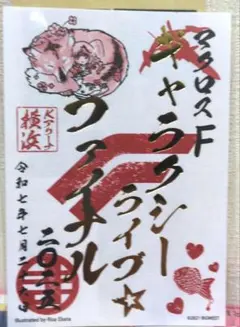 マクロスF
ギャラクシー
ライブ☆
ファイナル
二〇二五
Kアリーナ
横浜
令和七年七月二
Illustrated by Risa Ebata
©2021 BIGWEST